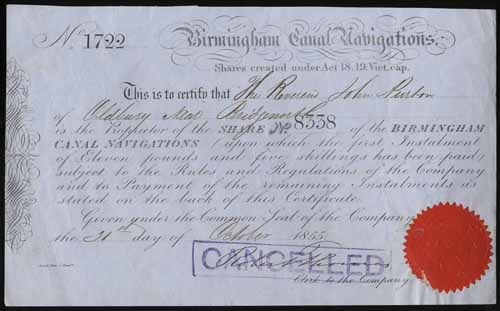 No 1722 Birmingham Canal Navigations.
Shares created under Act 18.19. Vict. cap.
This is to certify that The Reverend John Purton
of Oldbury Near Bridgnorth
is the Proprietor of the SHARE No 8358 of the BIRMINGHAM
CANAL NAVIGATIONS (upon which the first Instalment
of Eleven pounds and five shillings has been paid)
subject to the Rules and Regulations of the Company
and to Payment of the remaining Instalments as
stated on the back of this Certificate.
Given under the Common Seal of the Company
the 31st day of October 1855.
CANCELLED
Clerk to the Company